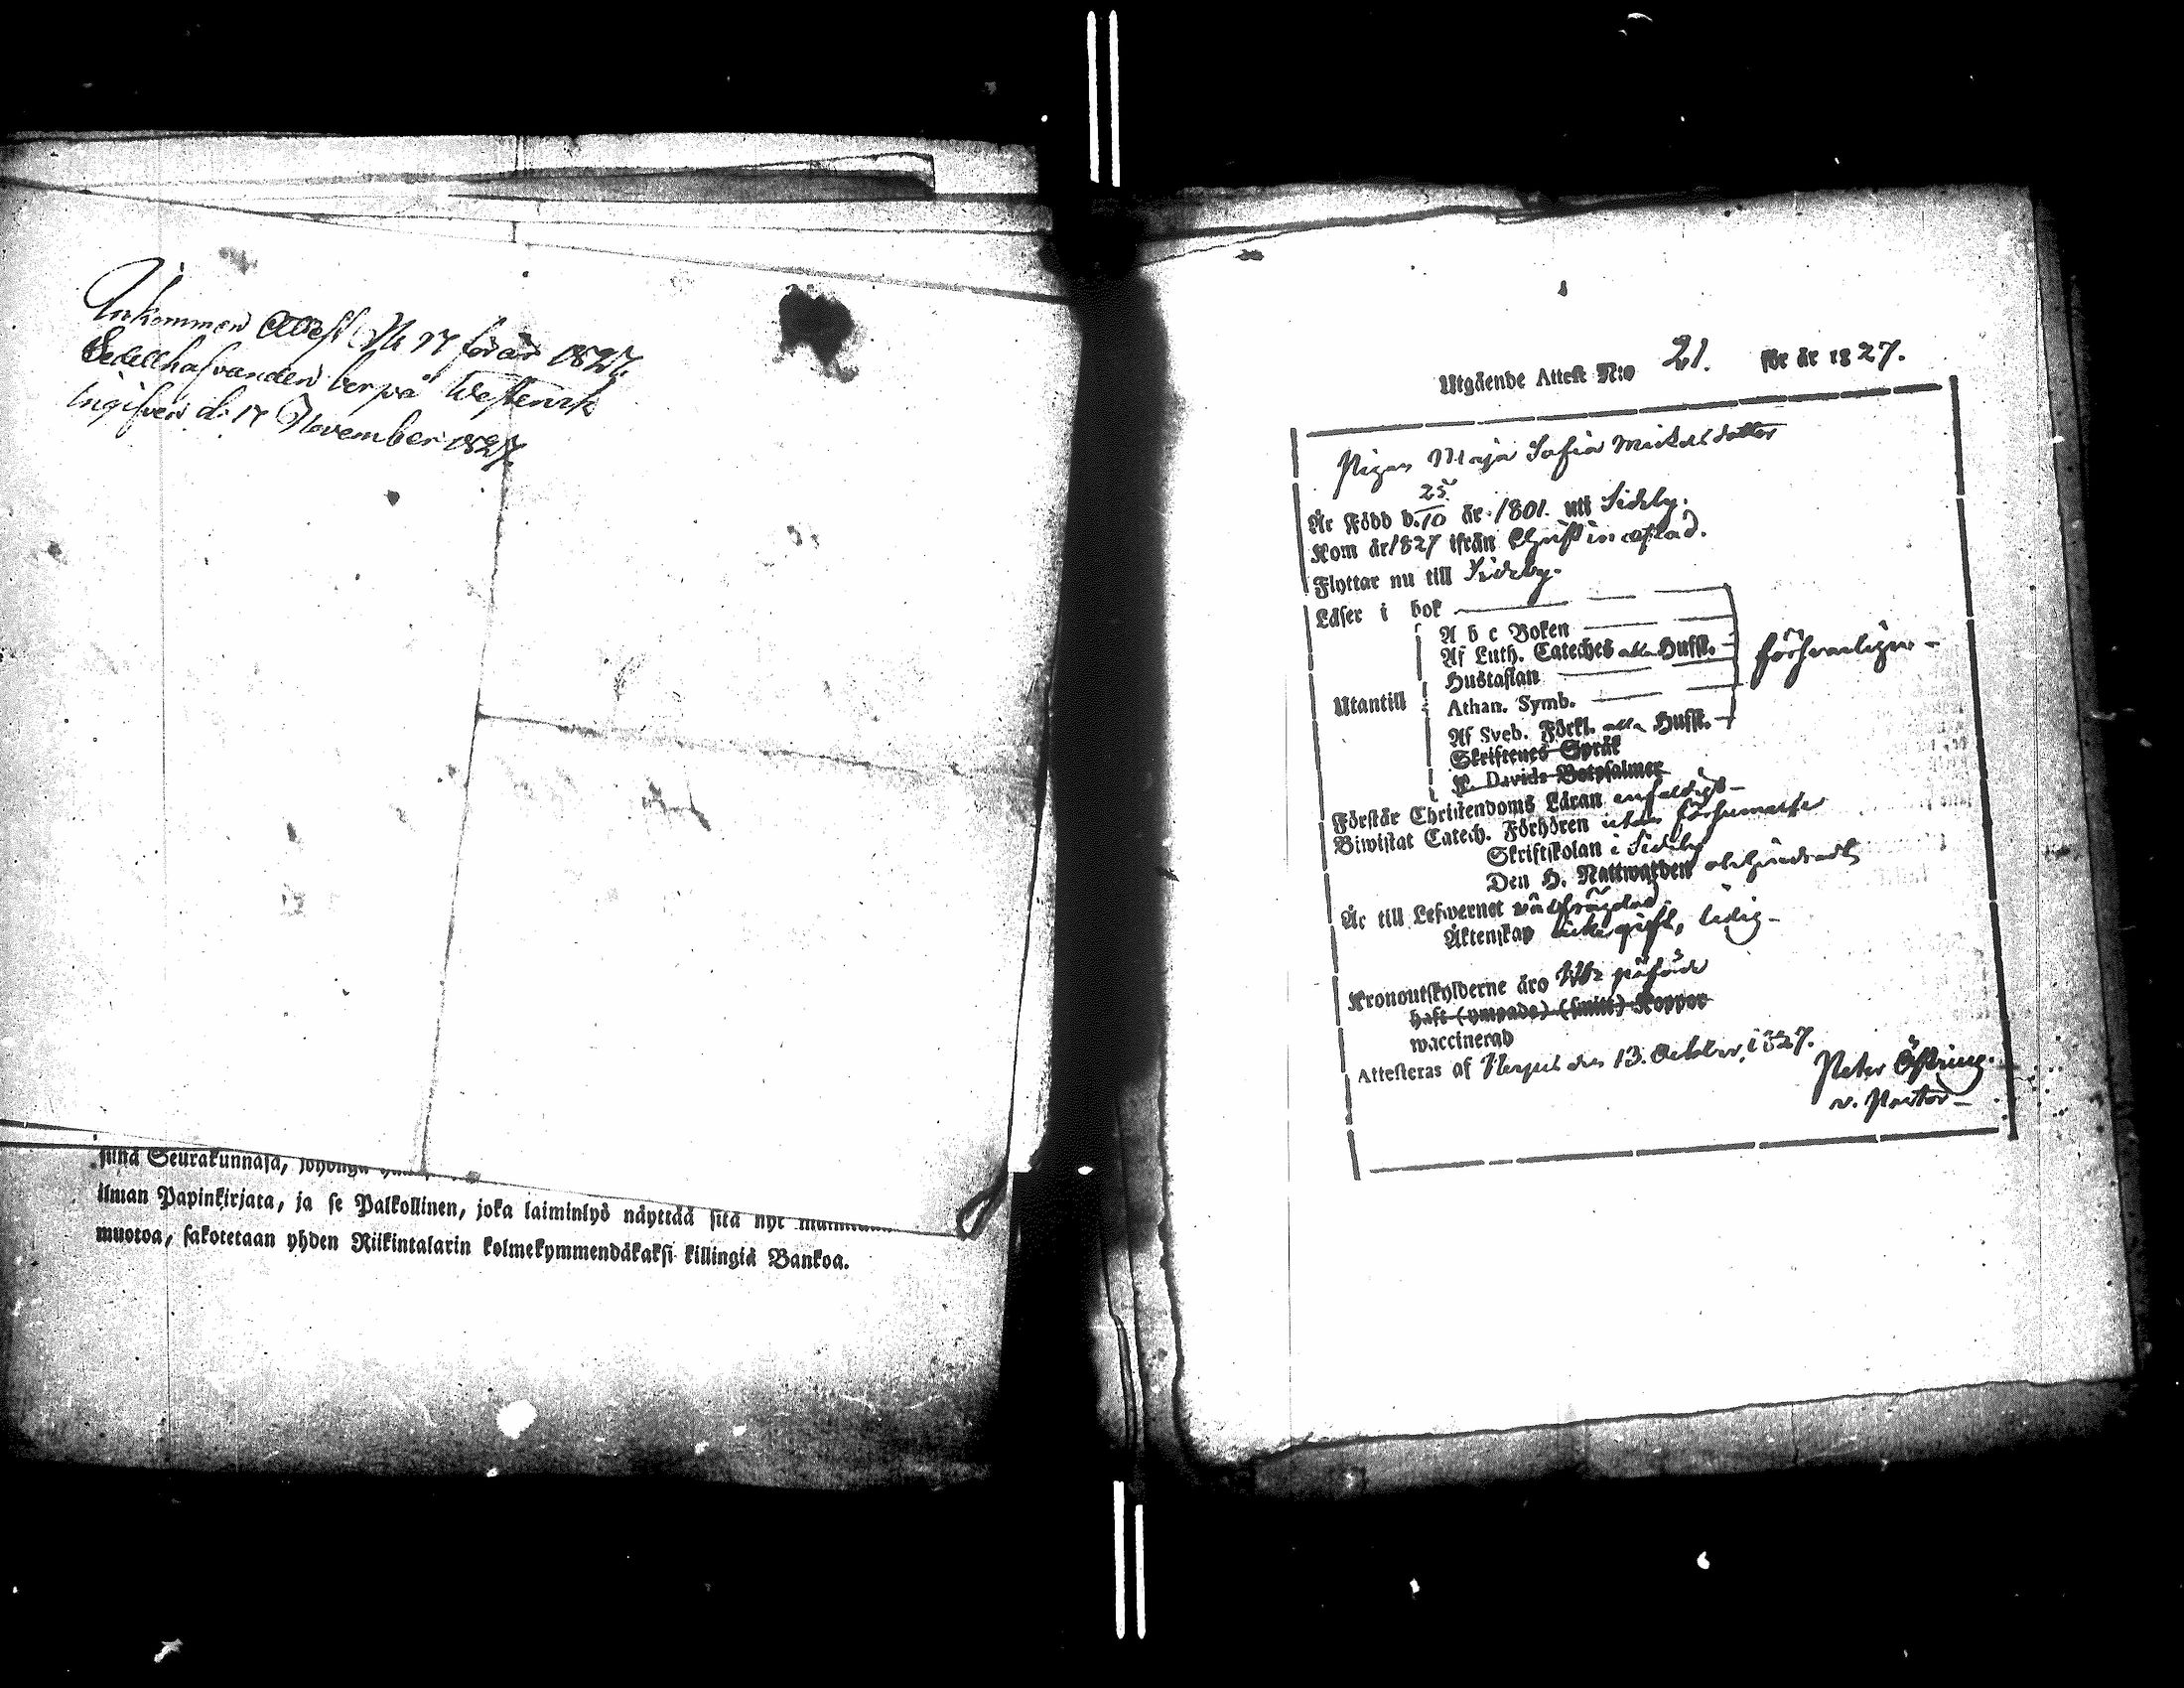 Inkommen Attest No 17 för år 1827.
Sedellhafvanden bor på Westervik
Ingifven d. 17 November 1827.
sillä Seurakunnasa,
ilman Papinkirjata, ja se Palkollinen, joka laiminlyö näyttää sitä nyt
muotoa, sakotetaan yhden Riikintalarin kolmekymmendäkaksi killingiä Bankoa.
Utgående Attest N:o 21. för år 1827.
Pigan Maja Sofia Mickelsdotter
Är Född d. 25/10 år 1801. uti Sideby.
Kom år 1827 ifrån Christinæstad.
Flyttar nu till Sideby.
Läser i bok
A b c Boken
Af Luth. Cateches alla Hufst.
Hustaflan
försvarligen
Utantill
Athan. Symb.
Af Sveb. Förkl. alla Hufst.
Skriftenes Språk
K. Davids Botpsalmer
Förstår Christendoms Läran enfaldigt
Biwistat Catech. Förhören utan försummelse
Skriftskolan i Sideby
Den H. Nattwarden obehindradt
Är till Lefwernet wälfrägdad.
Äktenskap ogift, ledig
Kronoutskylderne äro påförde
haft (ympade) (smitt) Koppor
waccinerad
Attesteras af Nerpes den 13. October, 1827.
Peter Östring.
v. Pastor